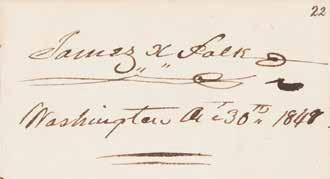 22
James K Polk
Washington 30th 1848